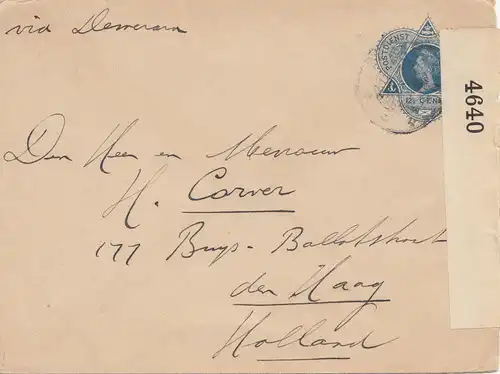 via Demerara
POSTDIENST
12½ CENT
4640
Den Heer en Mevrouw
H. Carver
177 Buys-Ballotstraat
den Haag
Holland